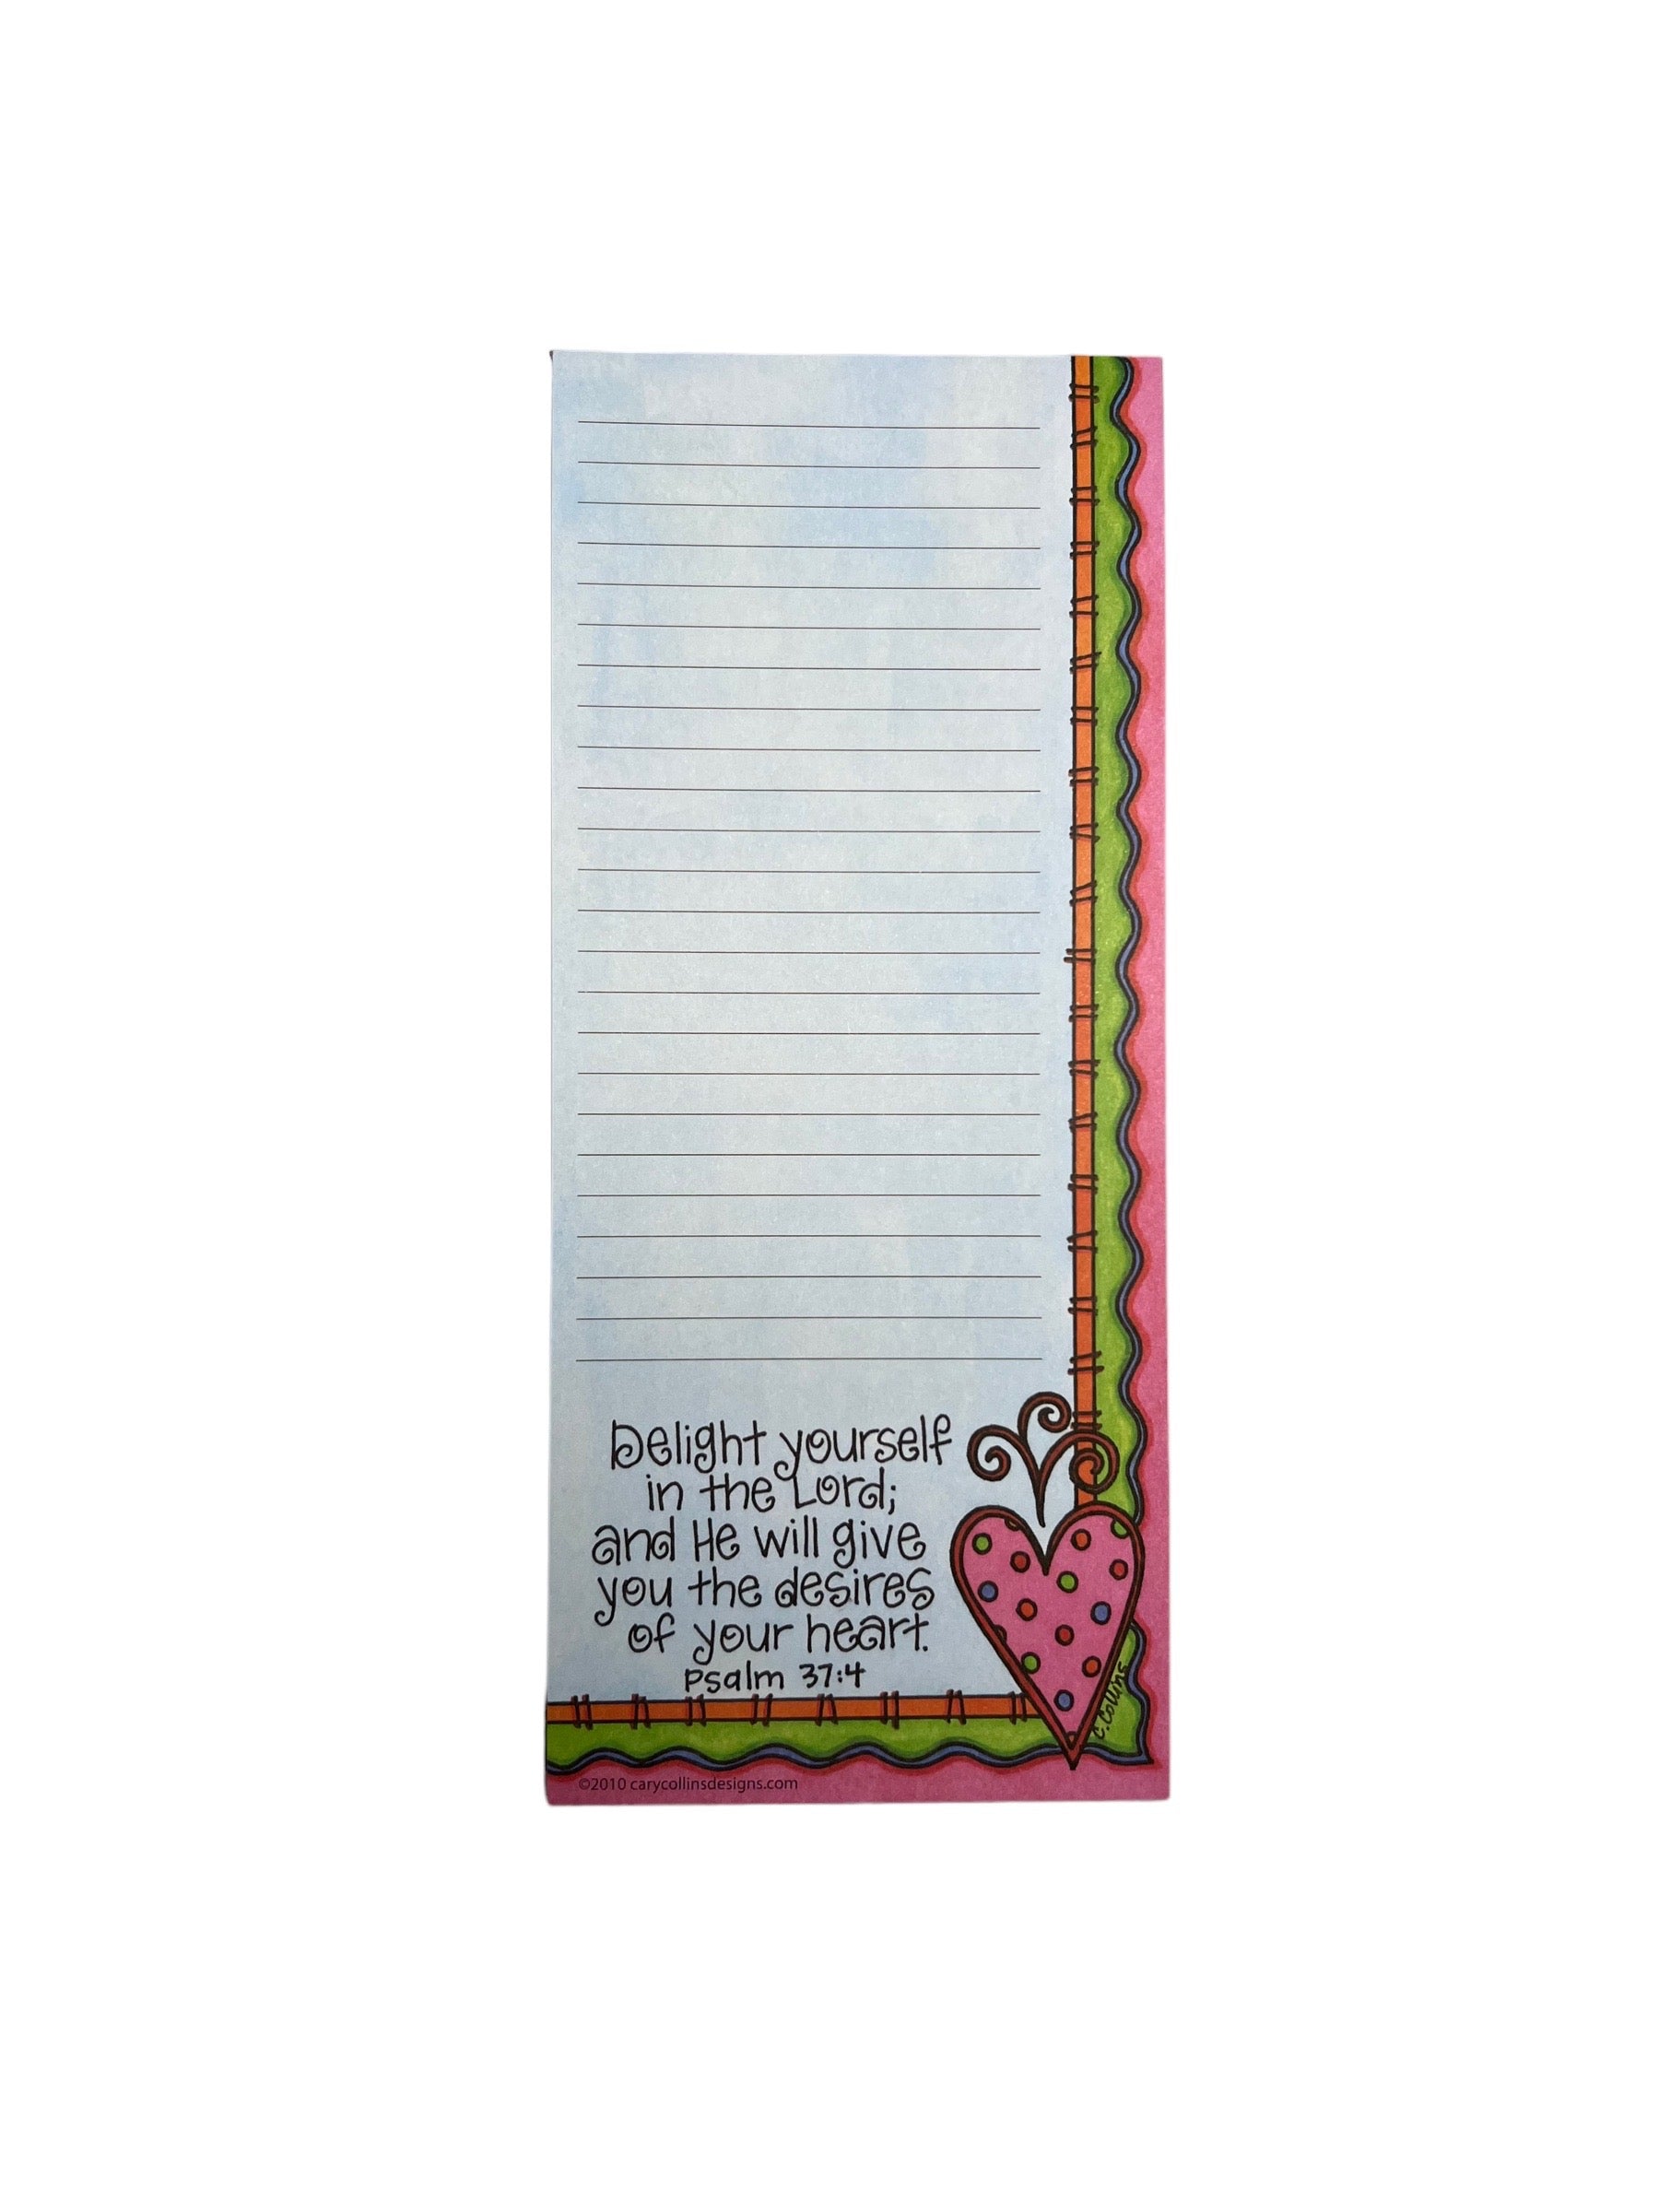 Delight yourself
in the Lord;
and He will give
you the desires
of your heart.
Psalm 37:4
C. Collins
©2010 carycollinsdesigns.com